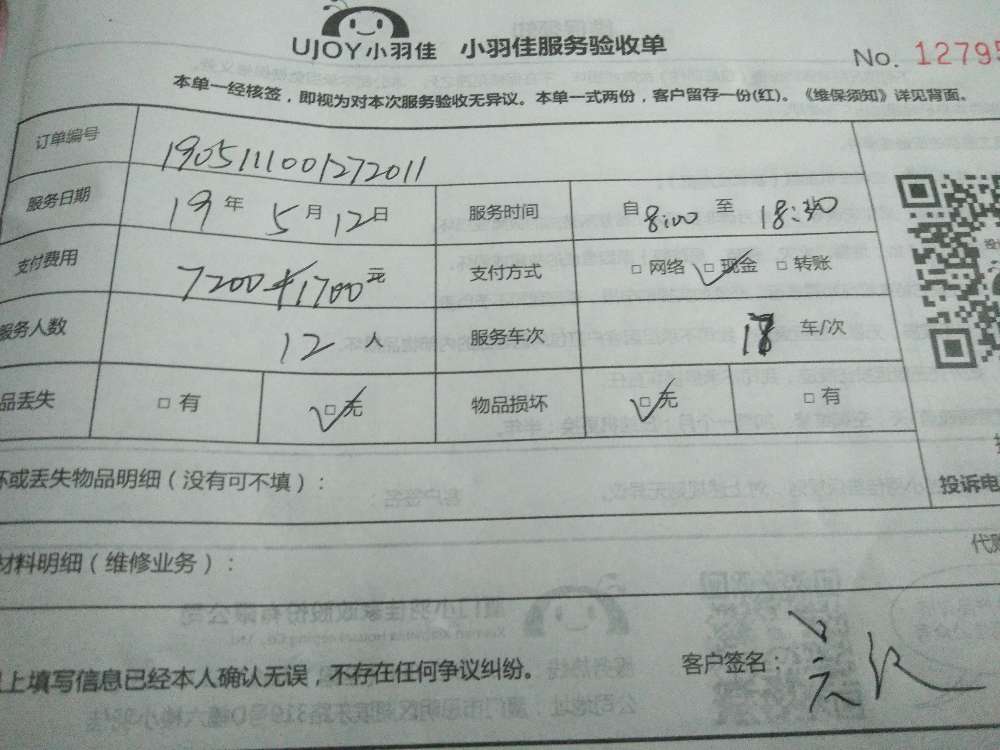 UJOY小羽佳 小羽佳服务验收单
No. 12795
本单一经核签，即视为对本次服务验收无异议。本单一式两份，客户留存一份(红)。《维保须知》详见背面。
订单编号 1905111001272011
服务日期 19年5月12日 服务时间 自8:00至18:30
支付费用 7200+1700元 支付方式 □网络 □现金 □转账
服务人数 12人 服务车次 车/次
品丢失 □有 □无 物品损坏 □无 □有
坏或丢失物品明细（没有可不填）：
投诉电
材料明细（维修业务）：
代购
以上填写信息已经本人确认无误，不存在任何争议纠纷。 客户签名：